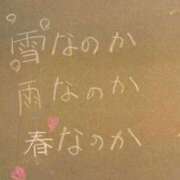 雪なのか
雨なのか
春なのか